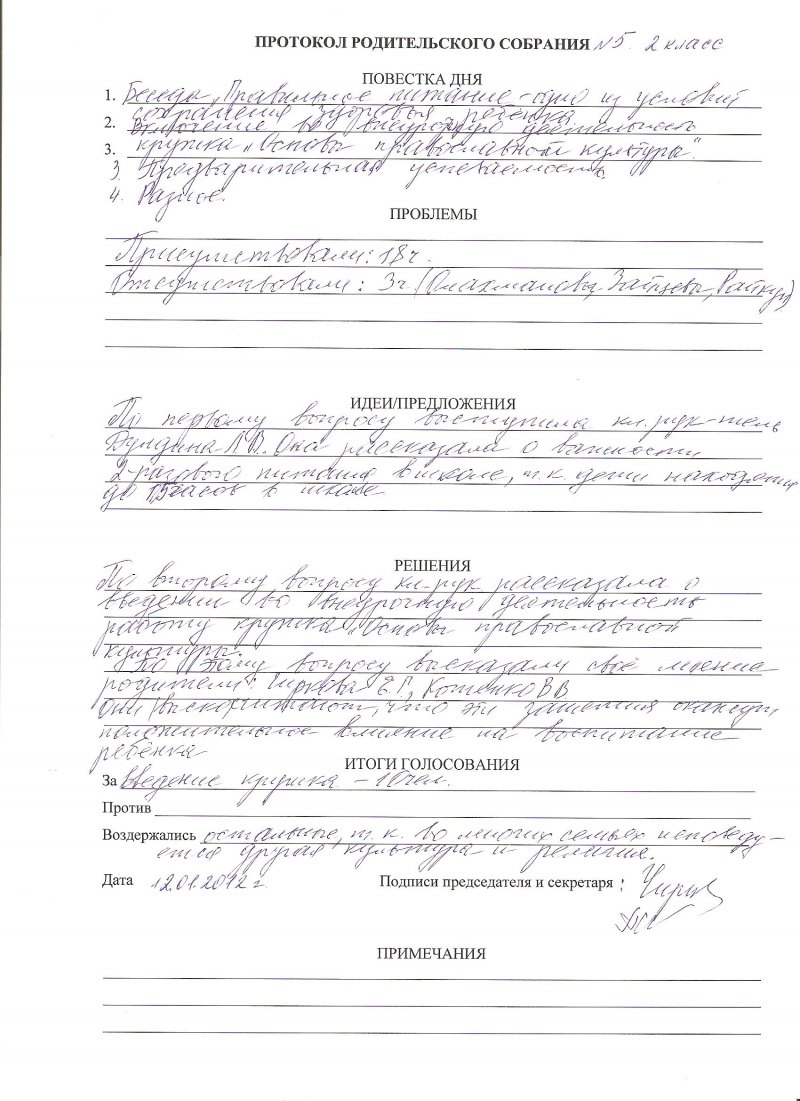 ПРОТОКОЛ РОДИТЕЛЬСКОГО СОБРАНИЯ №5 2 класс
ПОВЕСТКА ДНЯ
1. Беседа „Правильное питание - одно из условий
сохранения здоровья ребёнка
2. Включение во внеурочную деятельность
3. кружка „Основы православной культуры“.
3. Предварительная успеваемость.
4. Разное.
ПРОБЛЕМЫ
Присутствовали: 18ч.
Отсутствовали: 3ч. (
ИДЕИ/ПРЕДЛОЖЕНИЯ
По первому вопросу выступила кл.рук-тель
Л.В. Она рассказала о важности
2-разового питания в школе, т.к. дети находятся
до 15 часов в школе
РЕШЕНИЯ
По второму вопросу кл.рук рассказала о
введении во внеурочную деятельность
работу кружка „Основы православной
культуры.
По этому вопросу высказали своё мнение
родители: Чиркова Е.Г, Котенко В В
Они что эти занятия окажут
положительное влияние на воспитание
ребёнка
ИТОГИ ГОЛОСОВАНИЯ
За введение кружка - 10чел.
Против
Воздержались остальные, т.к. во многих семьях исповеду-
ется другая культура и религия.
Дата 12.01.2012 г. Подписи председателя и секретаря :
ПРИМЕЧАНИЯ